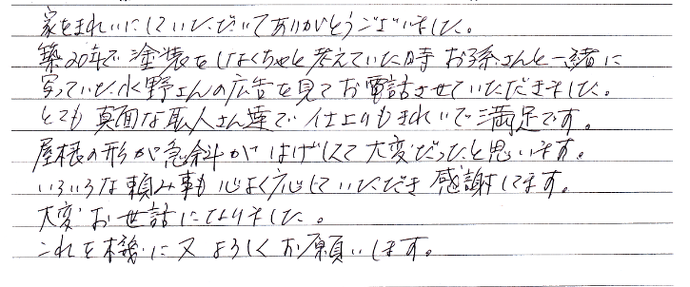 家をきれいにしていただいてありがとうございました。
築20年で塗装をしなくちゃと考えていた時お孫さんと一緒に
写っていた水野さんの広告を見てお電話させていただきました。
とても真面な職人さん達で仕上りもきれいで満足です。
屋根の形が急斜がはげしくて大変だったと思います。
いろいろな頼み事も心よく応じていただき感謝してます。
大変お世話になりました。
これを機に又よろしくお願いします。